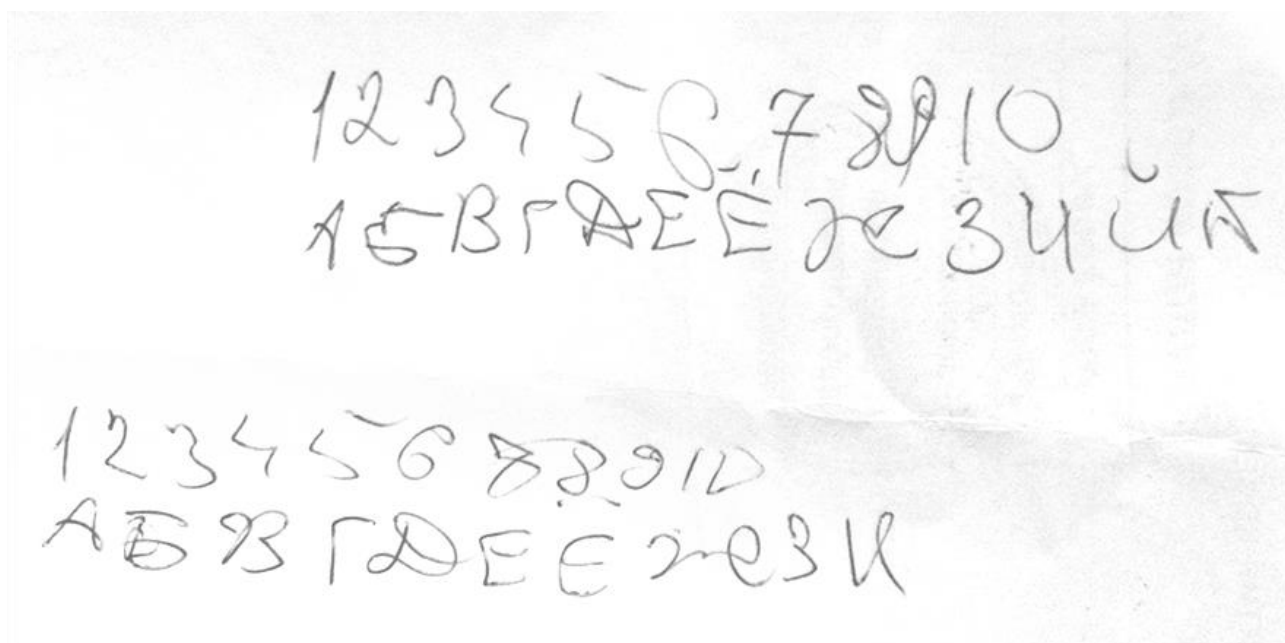 1 2 3 4 5 6 7 8 9 10
А Б В Г Д Е Ё Ж З И Й К
1 2 3 4 5 6 7 8 9 10
А Б В Г Д Е Ё Ж З И